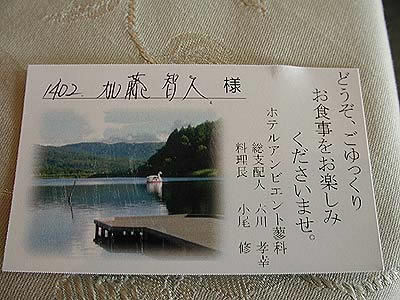 1402 加藤 智久 様
どうぞ、ごゆっくり
お食事をお楽しみ
くださいませ。
ホテルアンビエント蓼科
総支配人 六川 孝幸
料理長 小尾 修